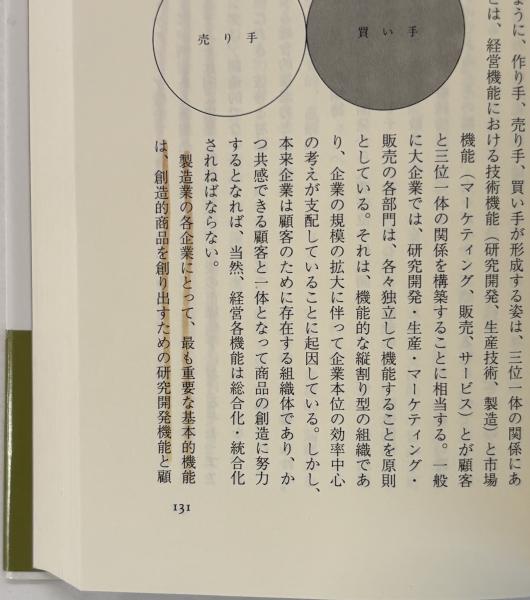 売り手
買い手
ように、作り手、売り手、買い手が形成する姿は、三位一体の関係にあ
とは、経営機能における技術機能（研究開発、生産技術、製造）と市場
機能（マーケティング、販売、サービス）とが顧客
と三位一体の関係を構築することに相当する。一般
に大企業では、研究開発・生産・マーケティング・
販売の各部門は、各々独立して機能することを原則
としている。それは、機能的な縦割り型の組織であ
り、企業の規模の拡大に伴って企業本位の効率中心
の考えが支配していることに起因している。しかし、
本来企業は顧客のために存在する組織体であり、か
つ共感できる顧客と一体となって商品の創造に努力
するとなれば、当然、経営各機能は総合化・統合化
されねばならない。
製造業の各企業にとって、最も重要な基本的機能
は、創造的商品を創り出すための研究開発機能と顧
131